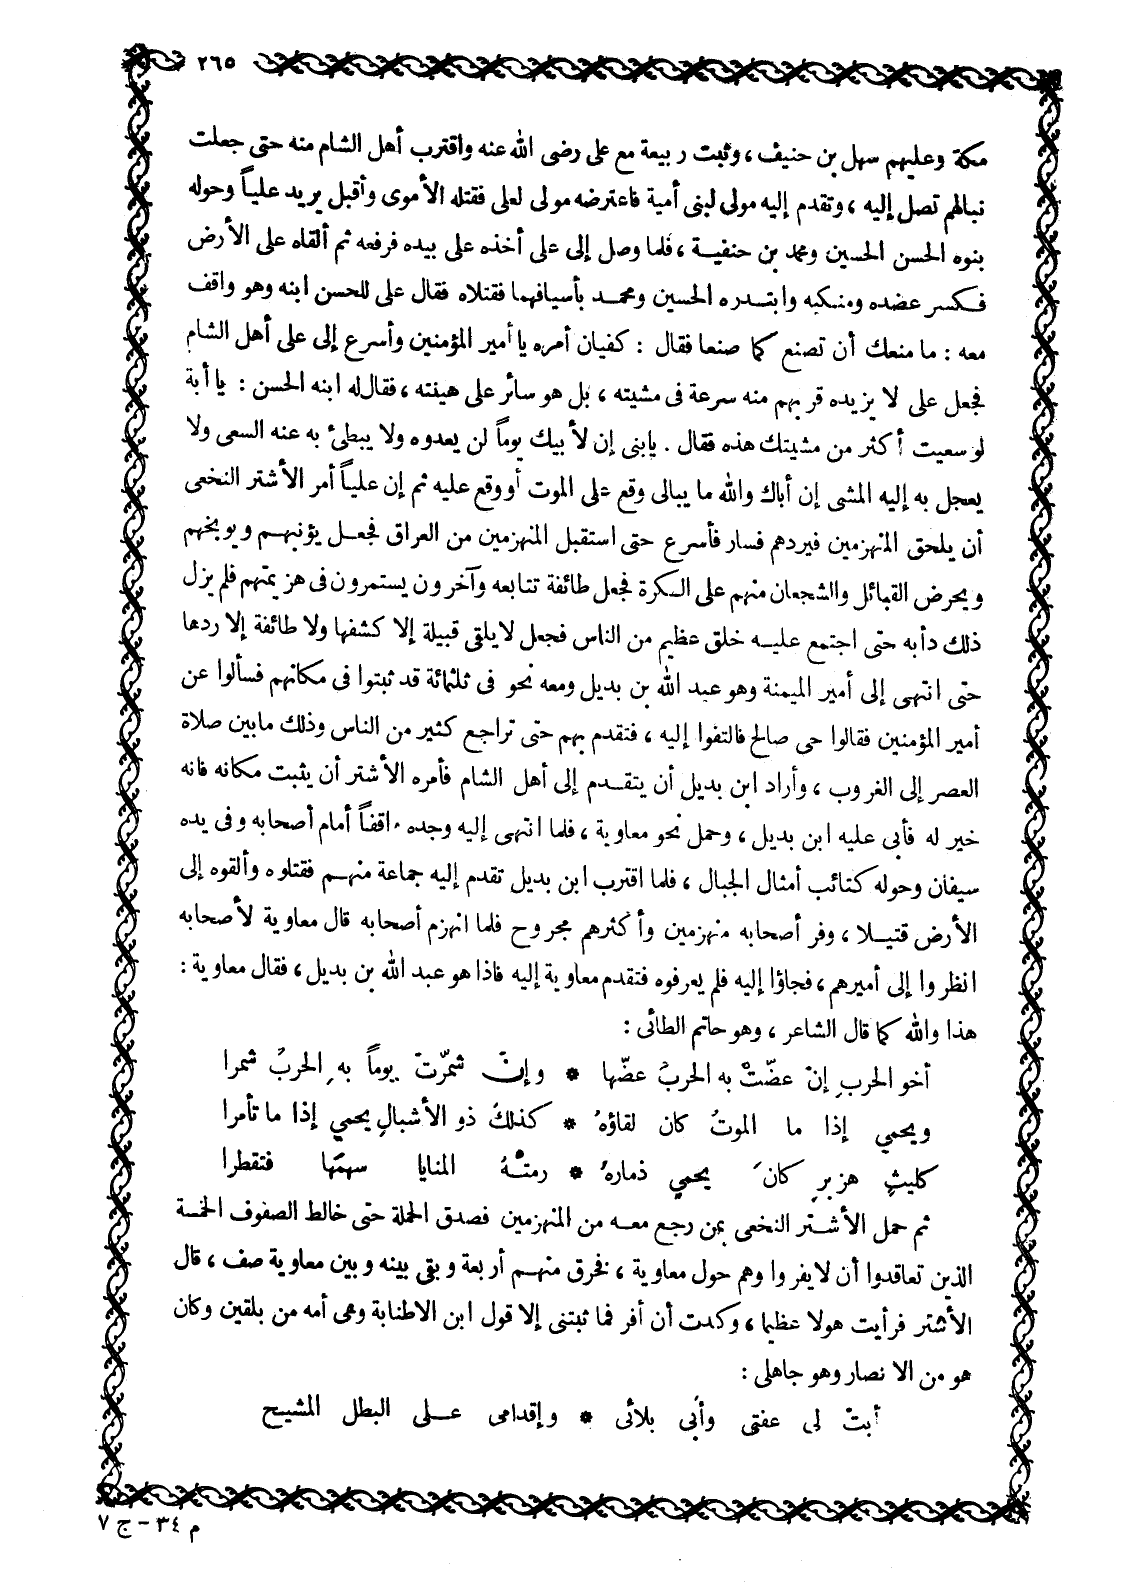 ٢٦٥
مكة وعليهم سهل بن حنيف ، وثبت ربيعة مع على رضى الله عنه واقترب أهل الشام منه حتى جعلت
نبالهم تصل إليه ، وتقدم إليه مولى لبنى أمية فاعترضه مولى لعلى فقتله الأموى وأقبل يريد علياً وحوله
بنوه الحسن الحسين ومحمد بن حنفية ، فلما وصل إلى على أخذه على بيده فرفعه ثم ألقاه على الأرض
فكسر عضده ومنكبه وابتدره الحسين ومحمد بأسيافهما فقتلاه فقال على للحسن ابنه وهو واقف
معه : ما منعك أن تصنع كما صنعا فقال : كفيان أمره يا أمير المؤمنين وأسرع إلى على أهل الشام
فجعل على لا يزيده قربهم منه سرعة فى مشيته ، بل هو سائر على هينته ، فقال له ابنه الحسن : يا أبة
لو سعيت أكثر من مشيتك هذه فقال . يابنى إن لأبيك يوماً لن يعدوه ولا يبطئ به عنه السعى ولا
يعجل به إليه المشى إن أباك والله ما يبالى وقع على الموت أو وقع عليه ثم إن علياً أمر الأشتر النخعى
أن يلحق المنهزمين فيردهم فسار فأسرع حتى استقبل المنهزمين من العراق فجعل يؤنبهم ويوبخهم
ويحرض القبائل والشجعان منهم على الكرة فجعل طائفة تتابعه وآخرون يستمرون فى هزيمتهم فلم يزل
ذلك دأبه حتى اجتمع عليه خلق عظيم من الناس فجعل لا يلقى قبيلة إلا كشفها ولا طائفة إلا ردها
حتى انتهى إلى أمير الميمنة وهو عبد الله بن بديل ومعه نحو فى ثلثمائة قد ثبتوا فى مكانهم فسألوا عن
أمير المؤمنين فقالوا حى صالح فالتفوا إليه ، فتقدم بهم حتى تراجع كثير من الناس وذلك مابين صلاة
العصر إلى الغروب ، وأراد ابن بديل أن يتقدم إلى أهل الشام فأمره الأشتر أن يثبت مكانه فانه
خير له فأبى عليه ابن بديل ، وحمل نحو معاوية ، فلما انتهى إليه وجده واقفاً أمام أصحابه وفى يده
سيفان وحوله كتائب أمثال الجبال ، فلما اقترب ابن بديل تقدم إليه جماعة منهم فقتلوه وألقوه إلى
الأرض قتيلا ، وفر أصحابه منهزمين وأكثرهم مجروح فلما انهزم أصحابه قال معاوية لأصحابه
انظروا إلى أميرهم ، فجاؤا إليه فلم يعرفوه فتقدم معاوية إليه فاذا هو عبد الله بن بديل ، فقال معاوية :
هذا والله كما قال الشاعر ، وهو حاتم الطائى :
أخو الحربِ إنْ عضّتْ به الحربُ عضّها * وإن شمّرتْ يوماً به الحربُ شمرا
ويحمي إذا ما الموتُ كان لقاؤهُ * كذلكَ ذو الأشبالِ يحمي إذا ما تأمرا
كليثِ هزبرٍ كانَ يحمي ذمارهُ * رمتْهُ المنايا سهمَها فتقطرا
ثم حمل الأشتر النخعى بمن رجع معه من المنهزمين فصدق الحملة حتى خالط الصفوف الخمسة
الذين تعاقدوا أن لا يفروا وهم حول معاوية ، فخرق منهم أربعة وبقى بينه وبين معاوية صف ، قال
الأشتر فرأيت هولا عظيما ، وكدت أن أفر فما ثبتنى إلا قول ابن الاطنابة وهى أمه من بلقين وكان
هو من الانصار وهو جاهلى :
أبتْ لى عفتى وأبى بلائى * وإقدامى على البطل المشيح
م ٣٤ – ج ٧